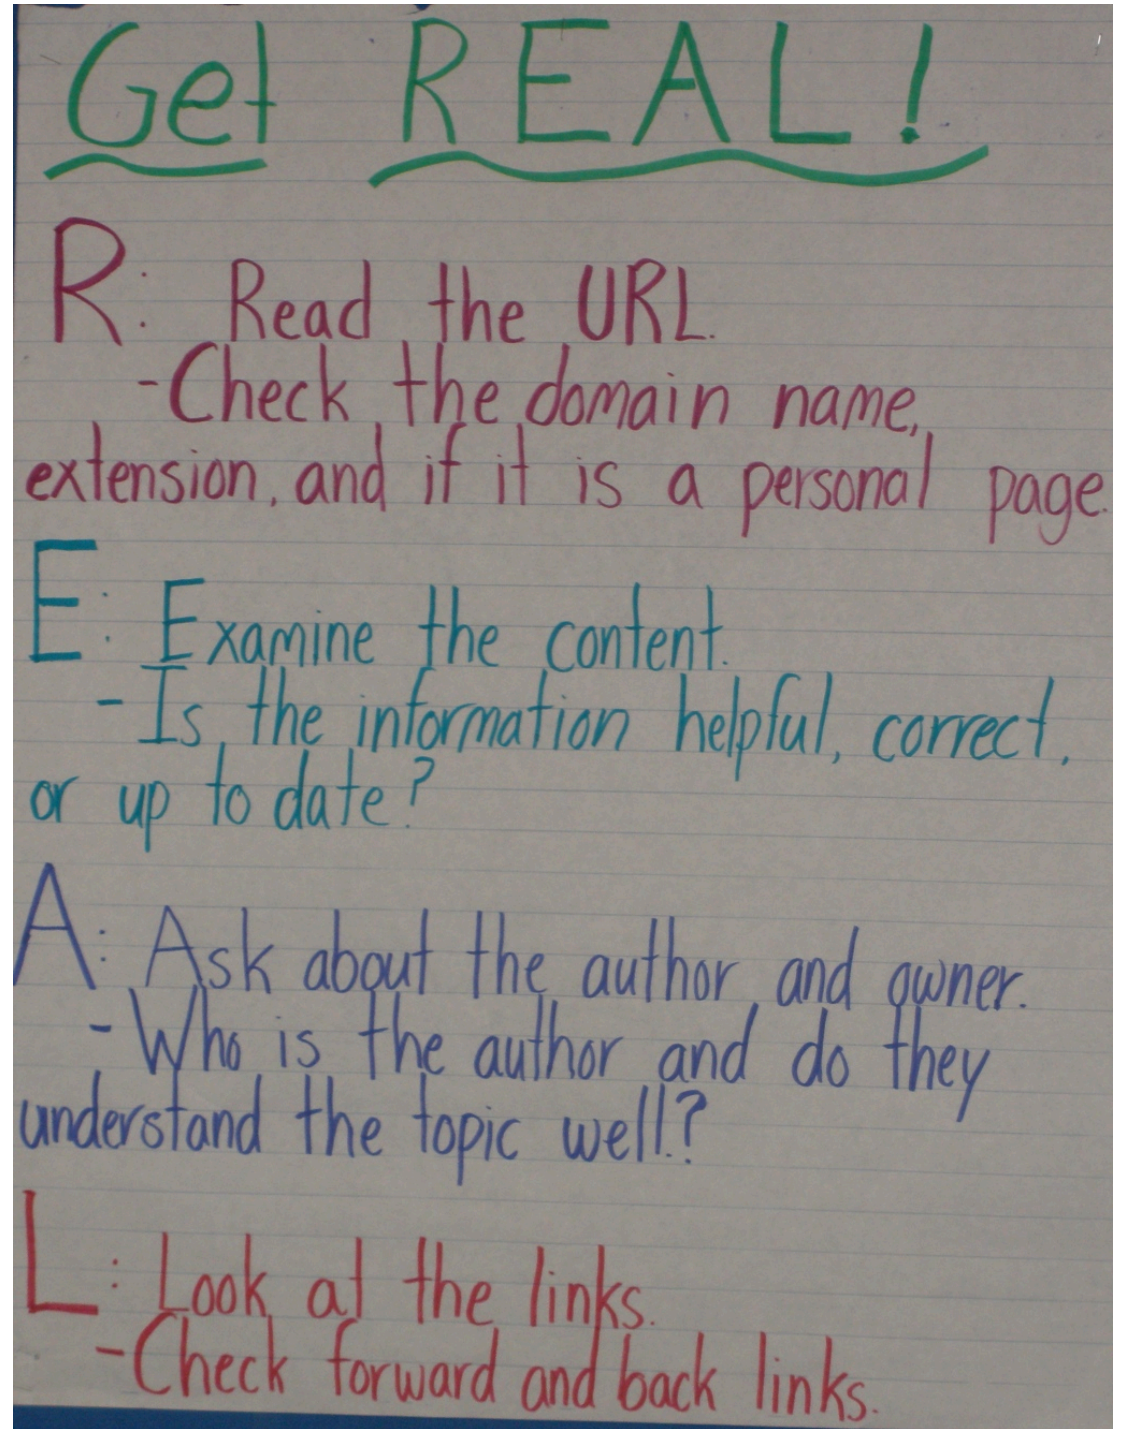 Get REAL!
R: Read the URL.
-Check the domain name,
extension, and if it is a personal page.
E: Examine the content.
- Is the information helpful, correct,
or up to date?
A: Ask about the author and owner.
- Who is the author and do they
understand the topic well?
L: Look at the links.
-Check forward and back links.